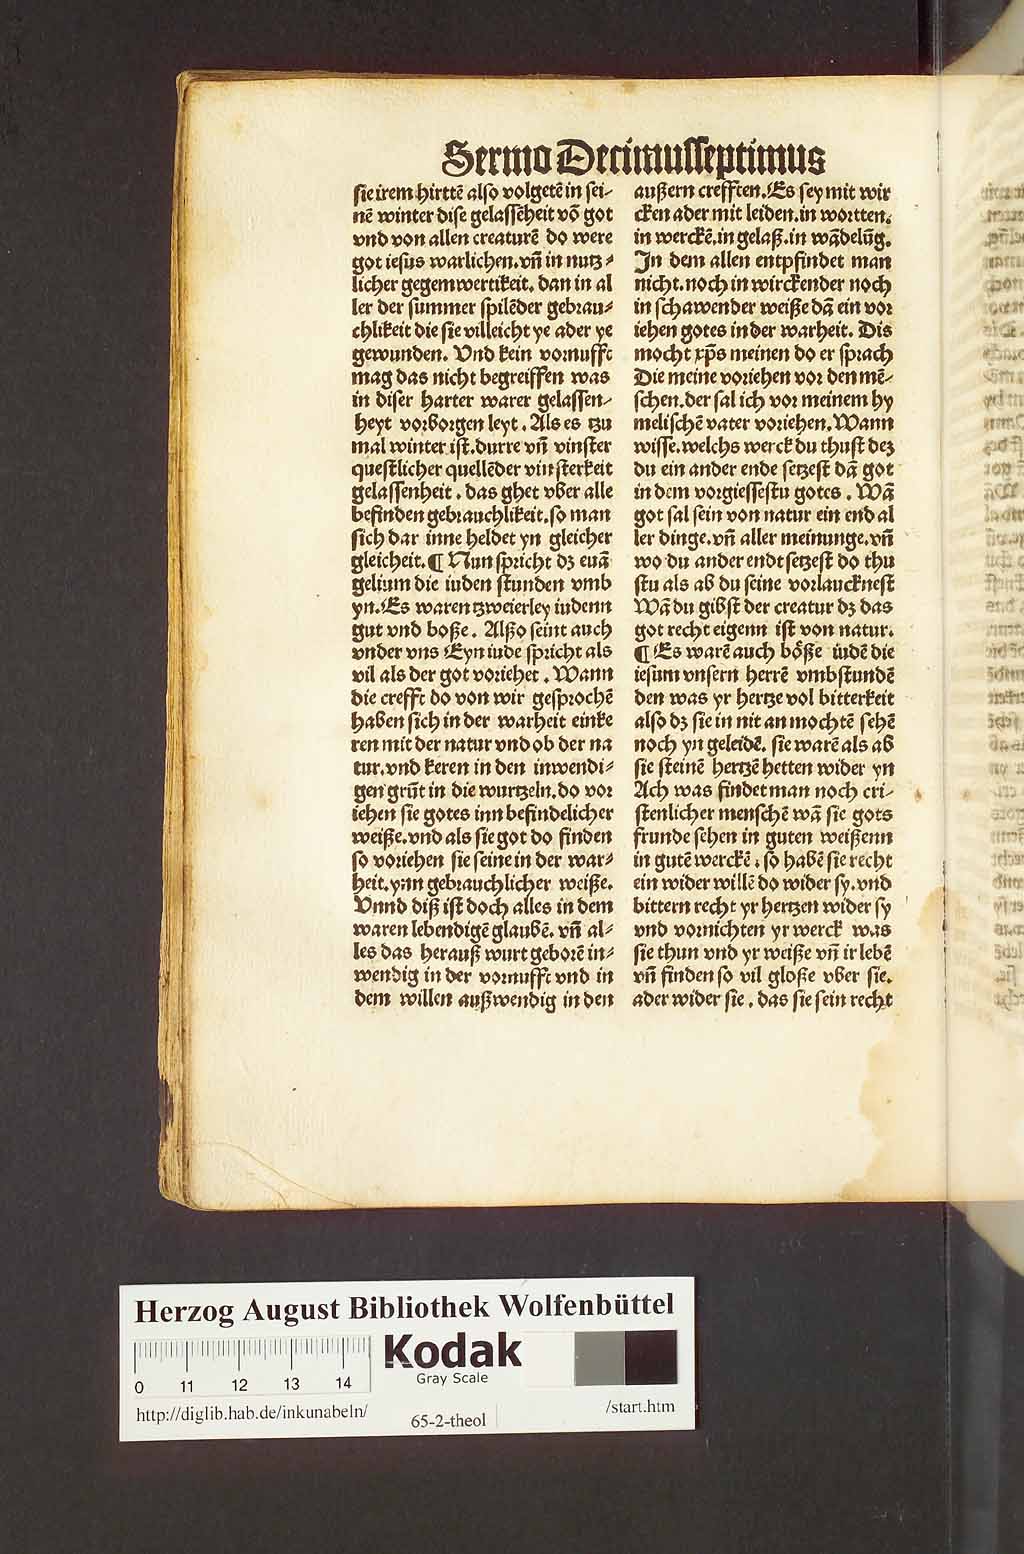 Sermo Decimusseptimus
sie irem hirttē also volgetē in sei-
nē winter dise gelassēheit vō got
vnd von allen creaturē do were
got iesus warlichen. vn̄ in nutz-
licher gegemwertikeit. dan in al
ler der summer spilēder gebrau-
chlikeit die sie villeicht ye ader ye
gewunden. Vnd kein vornufft
mag das nicht begreiffen was
in diser harter warer gelassen-
heyt vorborgen leyt. Als es tzu
mal winter ist. durre vn̄ vinster
questlicher quellēder vinsterkeit
gelassenheit. das ghet vber alle
befinden gebrauchlikeit. so man
sich dar inne heldet yn gleicher
gleicheit. ¶ Nun spricht dz euā
gelium die iuden stunden vmb
yn. Es waren tzweierley iudenn
gut vnd boße. Alßo seint auch
vnder vns Eyn iude spricht als
vil als der got voriehet. Wann
die crefft do von wir gesprochē
haben sich in der warheit einke
ren mit der natur vnd ob der na
tur. vnd keren in den inwendi-
gen grūt in die wurtzeln. do vor
iehen sie gotes inn befindelicher
weiße. vnd als sie got do finden
so voriehen sie seine in der war-
heit. ynn gebrauchlicher weiße.
Vnnd diß ist doch alles in dem
waren lebendigē glaubē. vn̄ al-
les das herauß wurt geborē in-
wendig in der vornufft vnd in
dem willen außwendig in den
außern crefften. Es sey mit wir
cken ader mit leiden. in wortten.
in werckē. in gelaß. in wādelūg.
In dem allen entpfindet man
nicht. noch in wirckender noch
in schawender weiße dā ein vor
iehen gotes in der warheit. Dis
mocht xp̄s meinen do er sprach
Die meine voriehen vor den mē-
schen. der sal ich vor meinem hy
melischē vater voriehen. Wann
wisse. welchs werck du thust dez
du ein ander ende setzest dā got
in dem vorgiessestu gotes. Wā
got sal sein von natur ein end al
ler dinge. vn̄ aller meinunge. vn̄
wo du ander endt setzest do thu
stu als ab du seine vorlaucknest
Wā du gibst der creatur dz das
got recht eigenn ist von natur.
¶ Es warē auch böße iudē die
iesum vnsern herrē vmbstundē
den was yr hertze vol bitterkeit
also dz sie in nit an mochtē sehē
noch yn geleidē. sie warē als ab
sie steinē hertzē hetten wider yn
Ach was findet man noch cri-
stenlicher menschē wā sie gots
frunde sehen in guten weißenn
in gutē werckē. so habē sie recht
ein wider willē do wider sy. vnd
bittern recht yr hertzen wider sy
vnd vornichten yr werck was
sie thun vnd yr weiße vn̄ ir lebē
vn̄ finden so vil gloße vber sie.
ader wider sie. das sie sein recht
Herzog August Bibliothek Wolfenbüttel
Kodak
Gray Scale
0 11 12 13 14
http://diglib.hab.de/inkunabeln/ 65-2-theol /start.htm